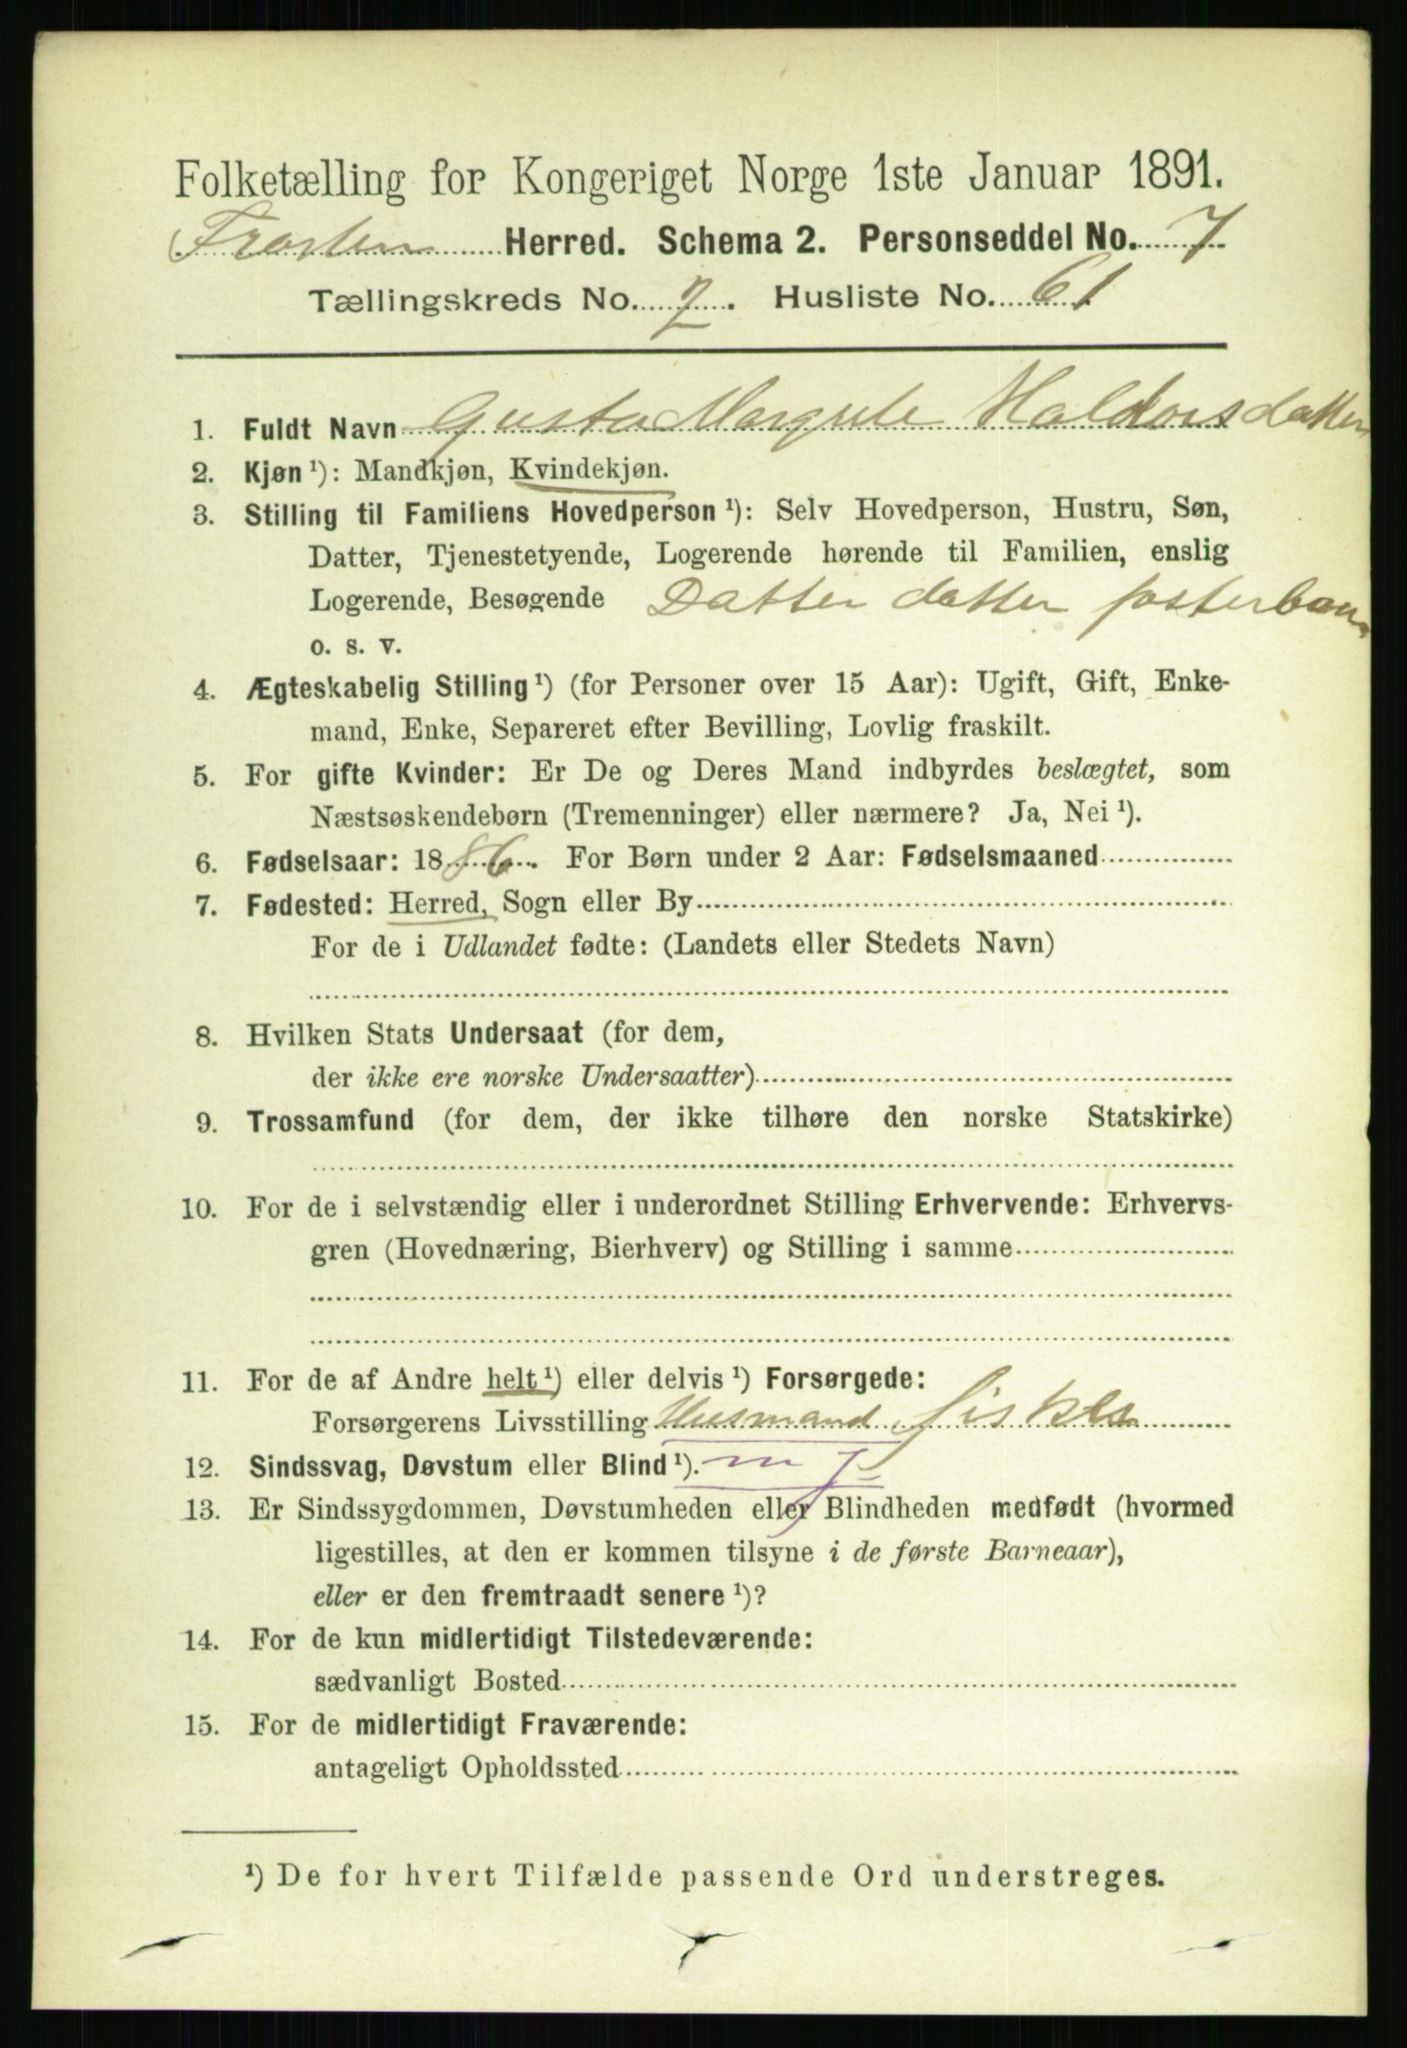 Folketælling for Kongeriget Norge 1ste Januar 1891.
Frosten Herred. Schema 2. Personseddel No. 7
Tællingskreds No. 7. Husliste No. 61
1. Fuldt Navn Gusta Margrete Haldorsdatter
2. Kjøn ¹): Mandkjøn, Kvindekjøn.
3. Stilling til Familiens Hovedperson ¹): Selv Hovedperson, Hustru, Søn,
Datter, Tjenestetyende, Logerende hørende til Familien, enslig
Logerende, Besøgende Datter datter fosterbarn
o. s. v.
4. Ægteskabelig Stilling ¹) (for Personer over 15 Aar): Ugift, Gift, Enke-
mand, Enke, Separeret efter Bevilling, Lovlig fraskilt.
5. For gifte Kvinder: Er De og Deres Mand indbyrdes beslægtet, som
Næstsøskendebørn (Tremenninger) eller nærmere? Ja, Nei ¹).
6. Fødselsaar: 1886. For Børn under 2 Aar: Fødselsmaaned
7. Fødested: Herred, Sogn eller By
For de i Udlandet fødte: (Landets eller Stedets Navn)
8. Hvilken Stats Undersaat (for dem,
der ikke ere norske Undersaatter)
9. Trossamfund (for dem, der ikke tilhøre den norske Statskirke)
10. For de i selvstændig eller i underordnet Stilling Erhvervende: Erhvervs-
gren (Hovednæring, Bierhverv) og Stilling i samme
11. For de af Andre helt ¹) eller delvis ¹) Forsørgede:
Forsørgerens Livsstilling Husmand fisker
12. Sindssvag, Døvstum eller Blind ¹). m f
13. Er Sindssygdommen, Døvstumheden eller Blindheden medfødt (hvormed
ligestilles, at den er kommen tilsyne i de første Barneaar),
eller er den fremtraadt senere ¹)?
14. For de kun midlertidigt Tilstedeværende:
sædvanligt Bosted
15. For de midlertidigt Fraværende:
antageligt Opholdssted
¹) De for hvert Tilfælde passende Ord understreges.